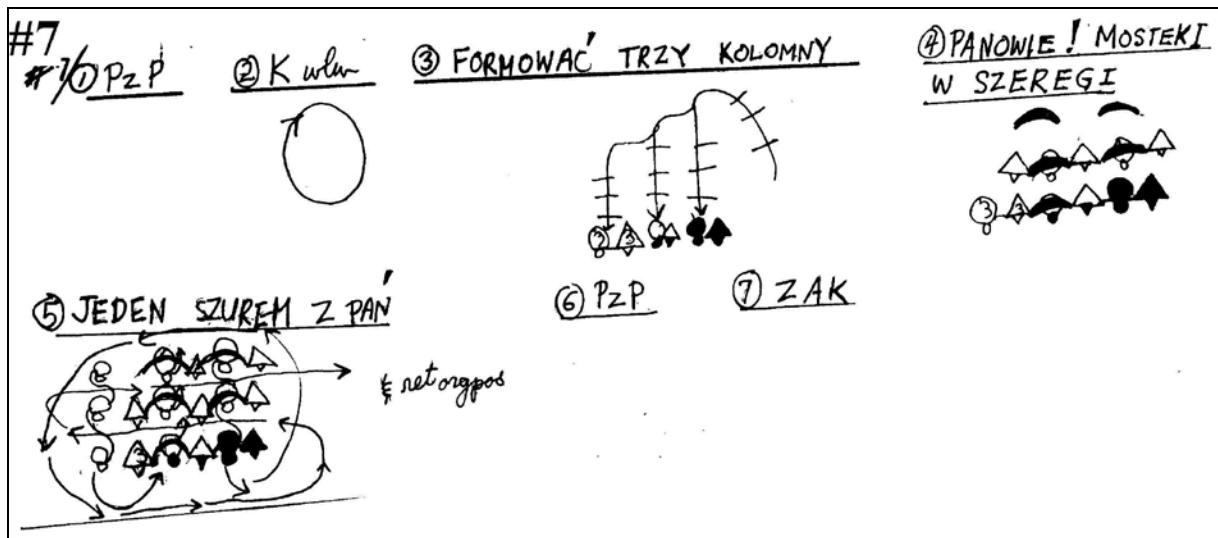 #7
# 7/① PzP
② K wlw
③ FORMOWAĆ TRZY KOLOMNY
3 3
④ PANOWIE! MOSTEKI
W SZEREGI
3 3
⑤ JEDEN SZUREM Z PAŃ
3
ret orgpos
⑥ PZP
⑦ ZAK